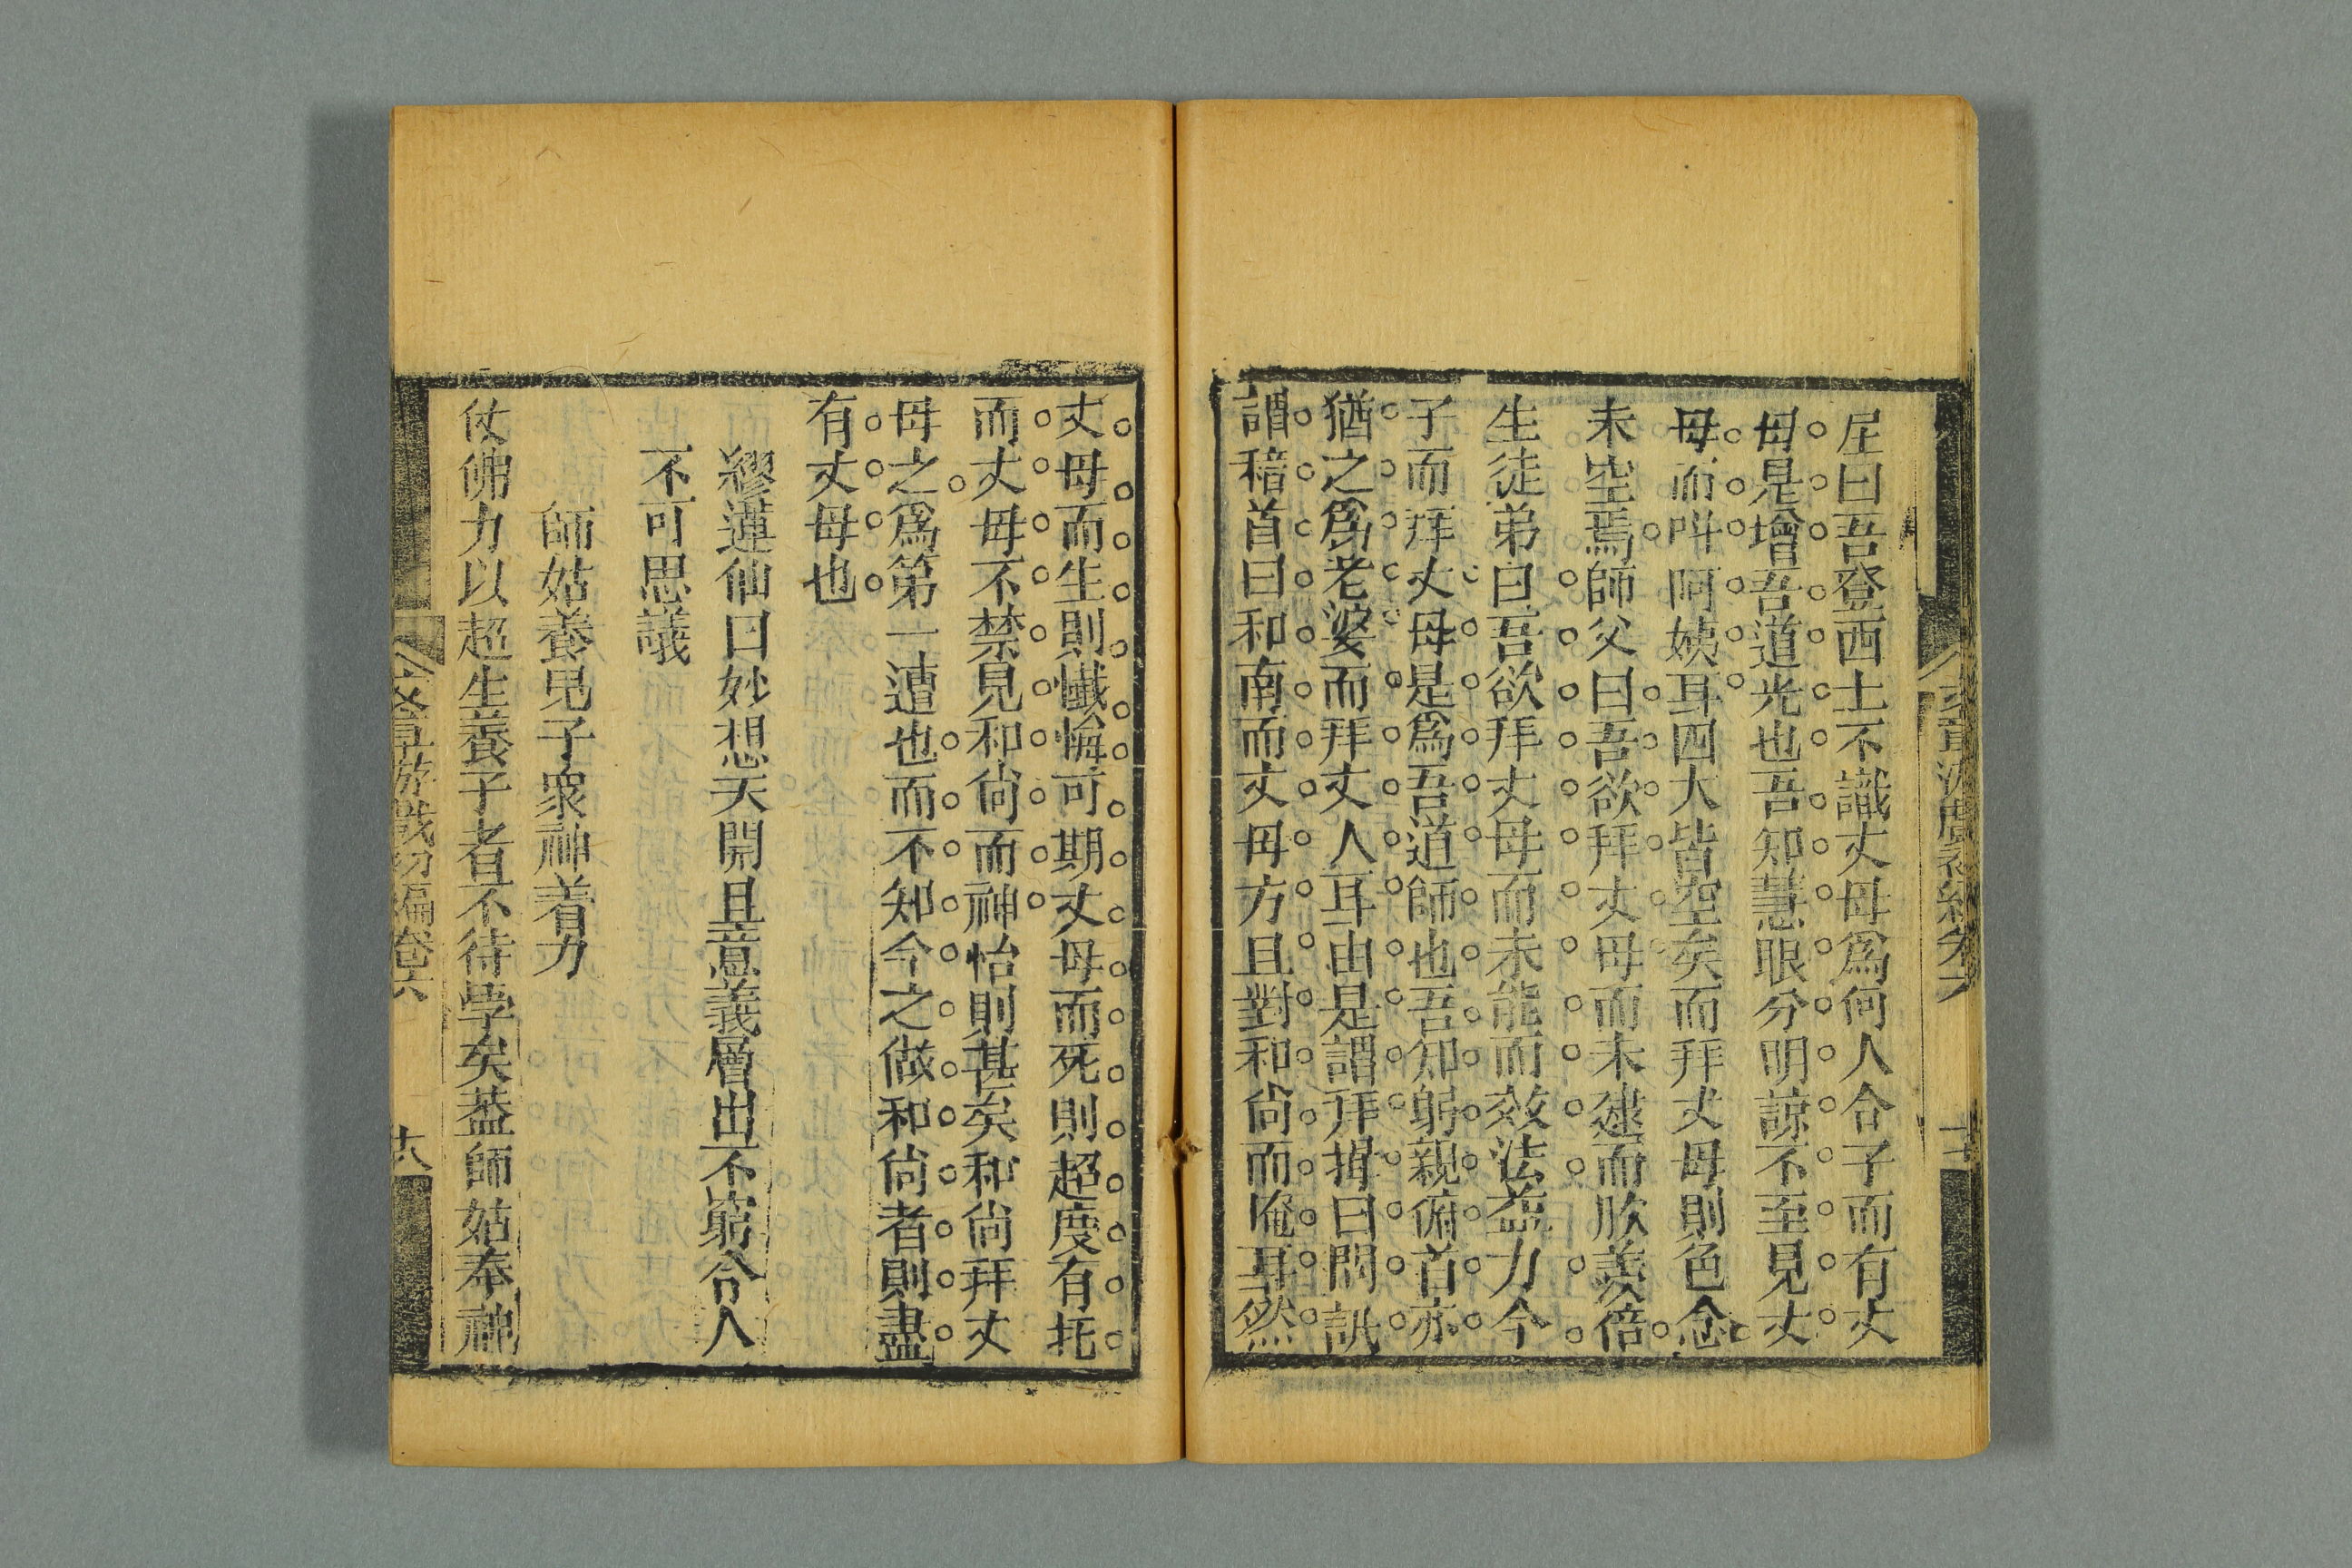 至曰吾登西土不識丈母爲何人合子而有丈
母是增吾道光也吾知慧眼分明諒不至見丈
母而呌阿姨耳四大皆空矣而拜丈母則色念
未空焉師父曰吾欲拜丈母而未逮而歆羨倍
生徒弟曰吾欲拜丈母而未能而效法益力今
子而拜丈母是爲吾道師也吾知躬親俯首亦
猶之爲老婆而拜丈人耳由是謂拜揖曰問訊
謂稽首曰和南而丈母方且對和尙而唵耳然
丈母而生則懺悔可期丈母而死則超度有托
而丈母不禁見和尙而神怡則甚矣和尙拜丈
母之爲第一遭也而不知今之做和尙者則盡
有丈母也
繆蓮仙曰妙想天開且意義層出不窮令人
不可思議
師姑養兒子衆神着力
仗佛力以超生養子者不待學矣葢師姑奉神
文章游戲初編卷六
十八